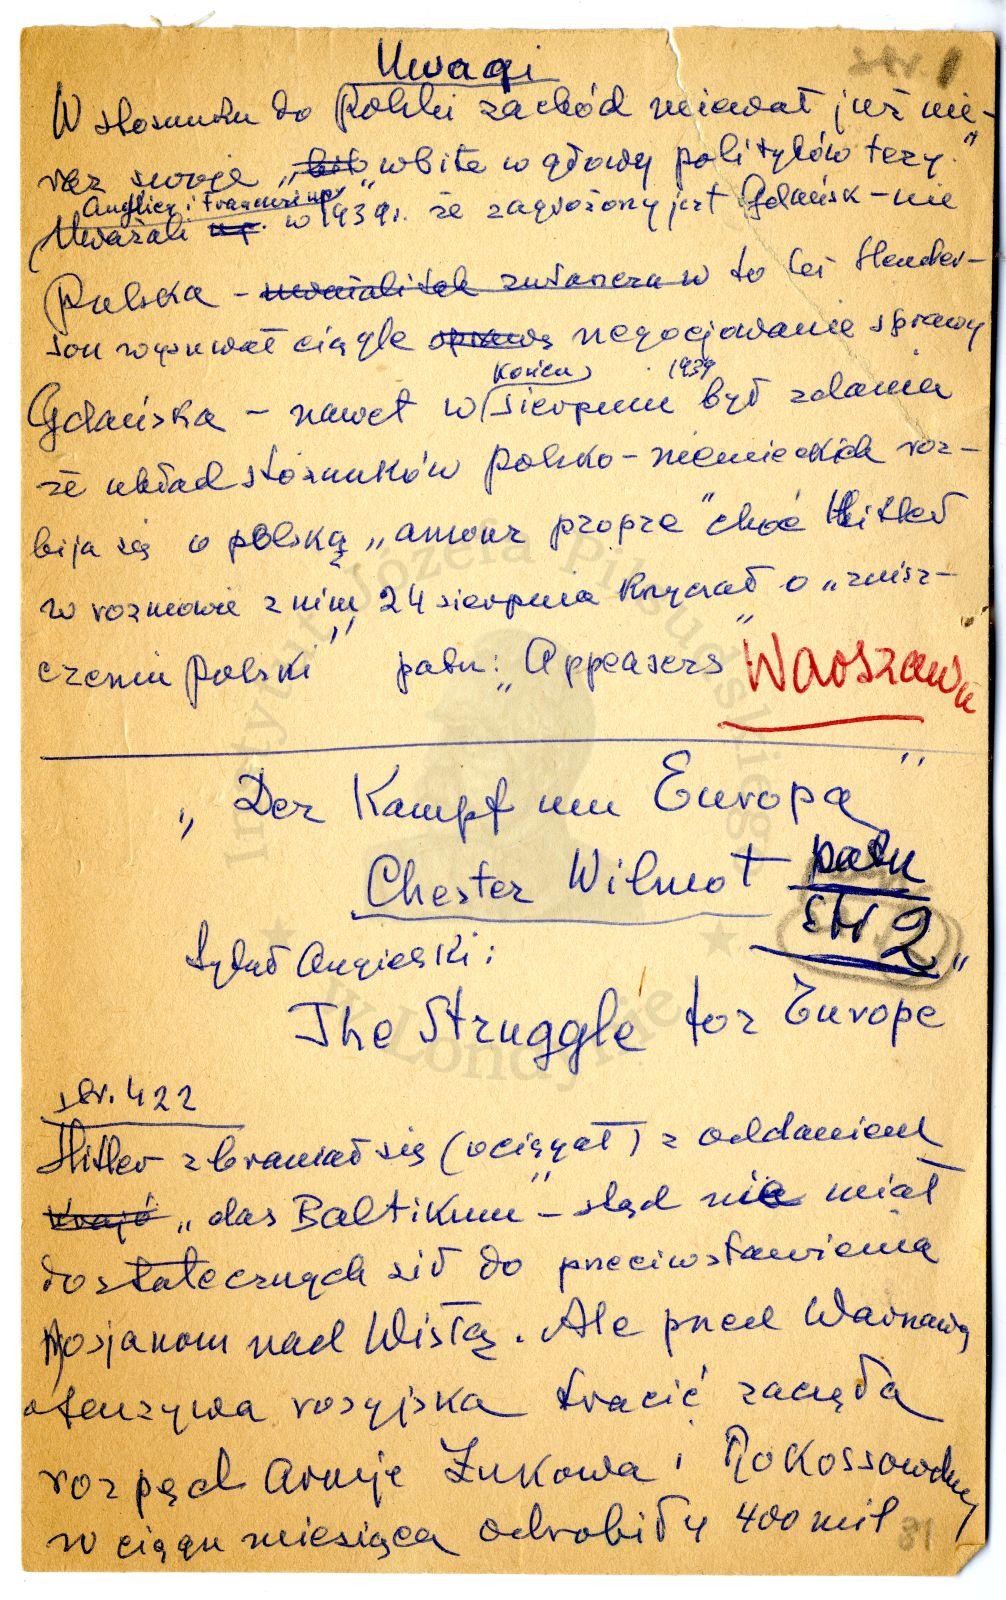 Uwagi
str. 1
W stosunku do Polski zachód miewał już nie-
raz swoje „bit wbite w głowy polityków tezy."
Anglicy i Francuzi
Uważali np. w 1939 r. że zagrożony jest Gdańsk – nie
Polska – uważali tak zwłaszcza w to też Hender-
son wysuwał ciągle sprawę negocjowanie sprawy
końcu 1939
Gdańska – nawet w sierpniu był zdania
że układ stosunków polsko-niemieckich roz-
bija się o polską „amour propre" choć Hitler
w rozmowie z nim 24 sierpnia krzyczał o „znisz-
czeniu Polski" patrz: „Appeasers" Warszawa
„Der Kampf um Europa"
Chester Wilmot patrz
str 2
tytuł angielski:
„The Struggle for Europe
str. 422
Hitler zbraniał się (ociągał) z oddaniem
krajó „das Baltikum" – stąd nie miał
dostatecznych sił do przeciwstawienia
Rosjanom nad Wisłą. Ale pned Warszawą
ofenzywa rosyjska tracić zaczęła
rozpęd Armje Żukowa i Rokossowskiego
w ciągu miesiąca odrobiły 400 mil
31
Instytut Józefa Piłsudskiego
w Londynie